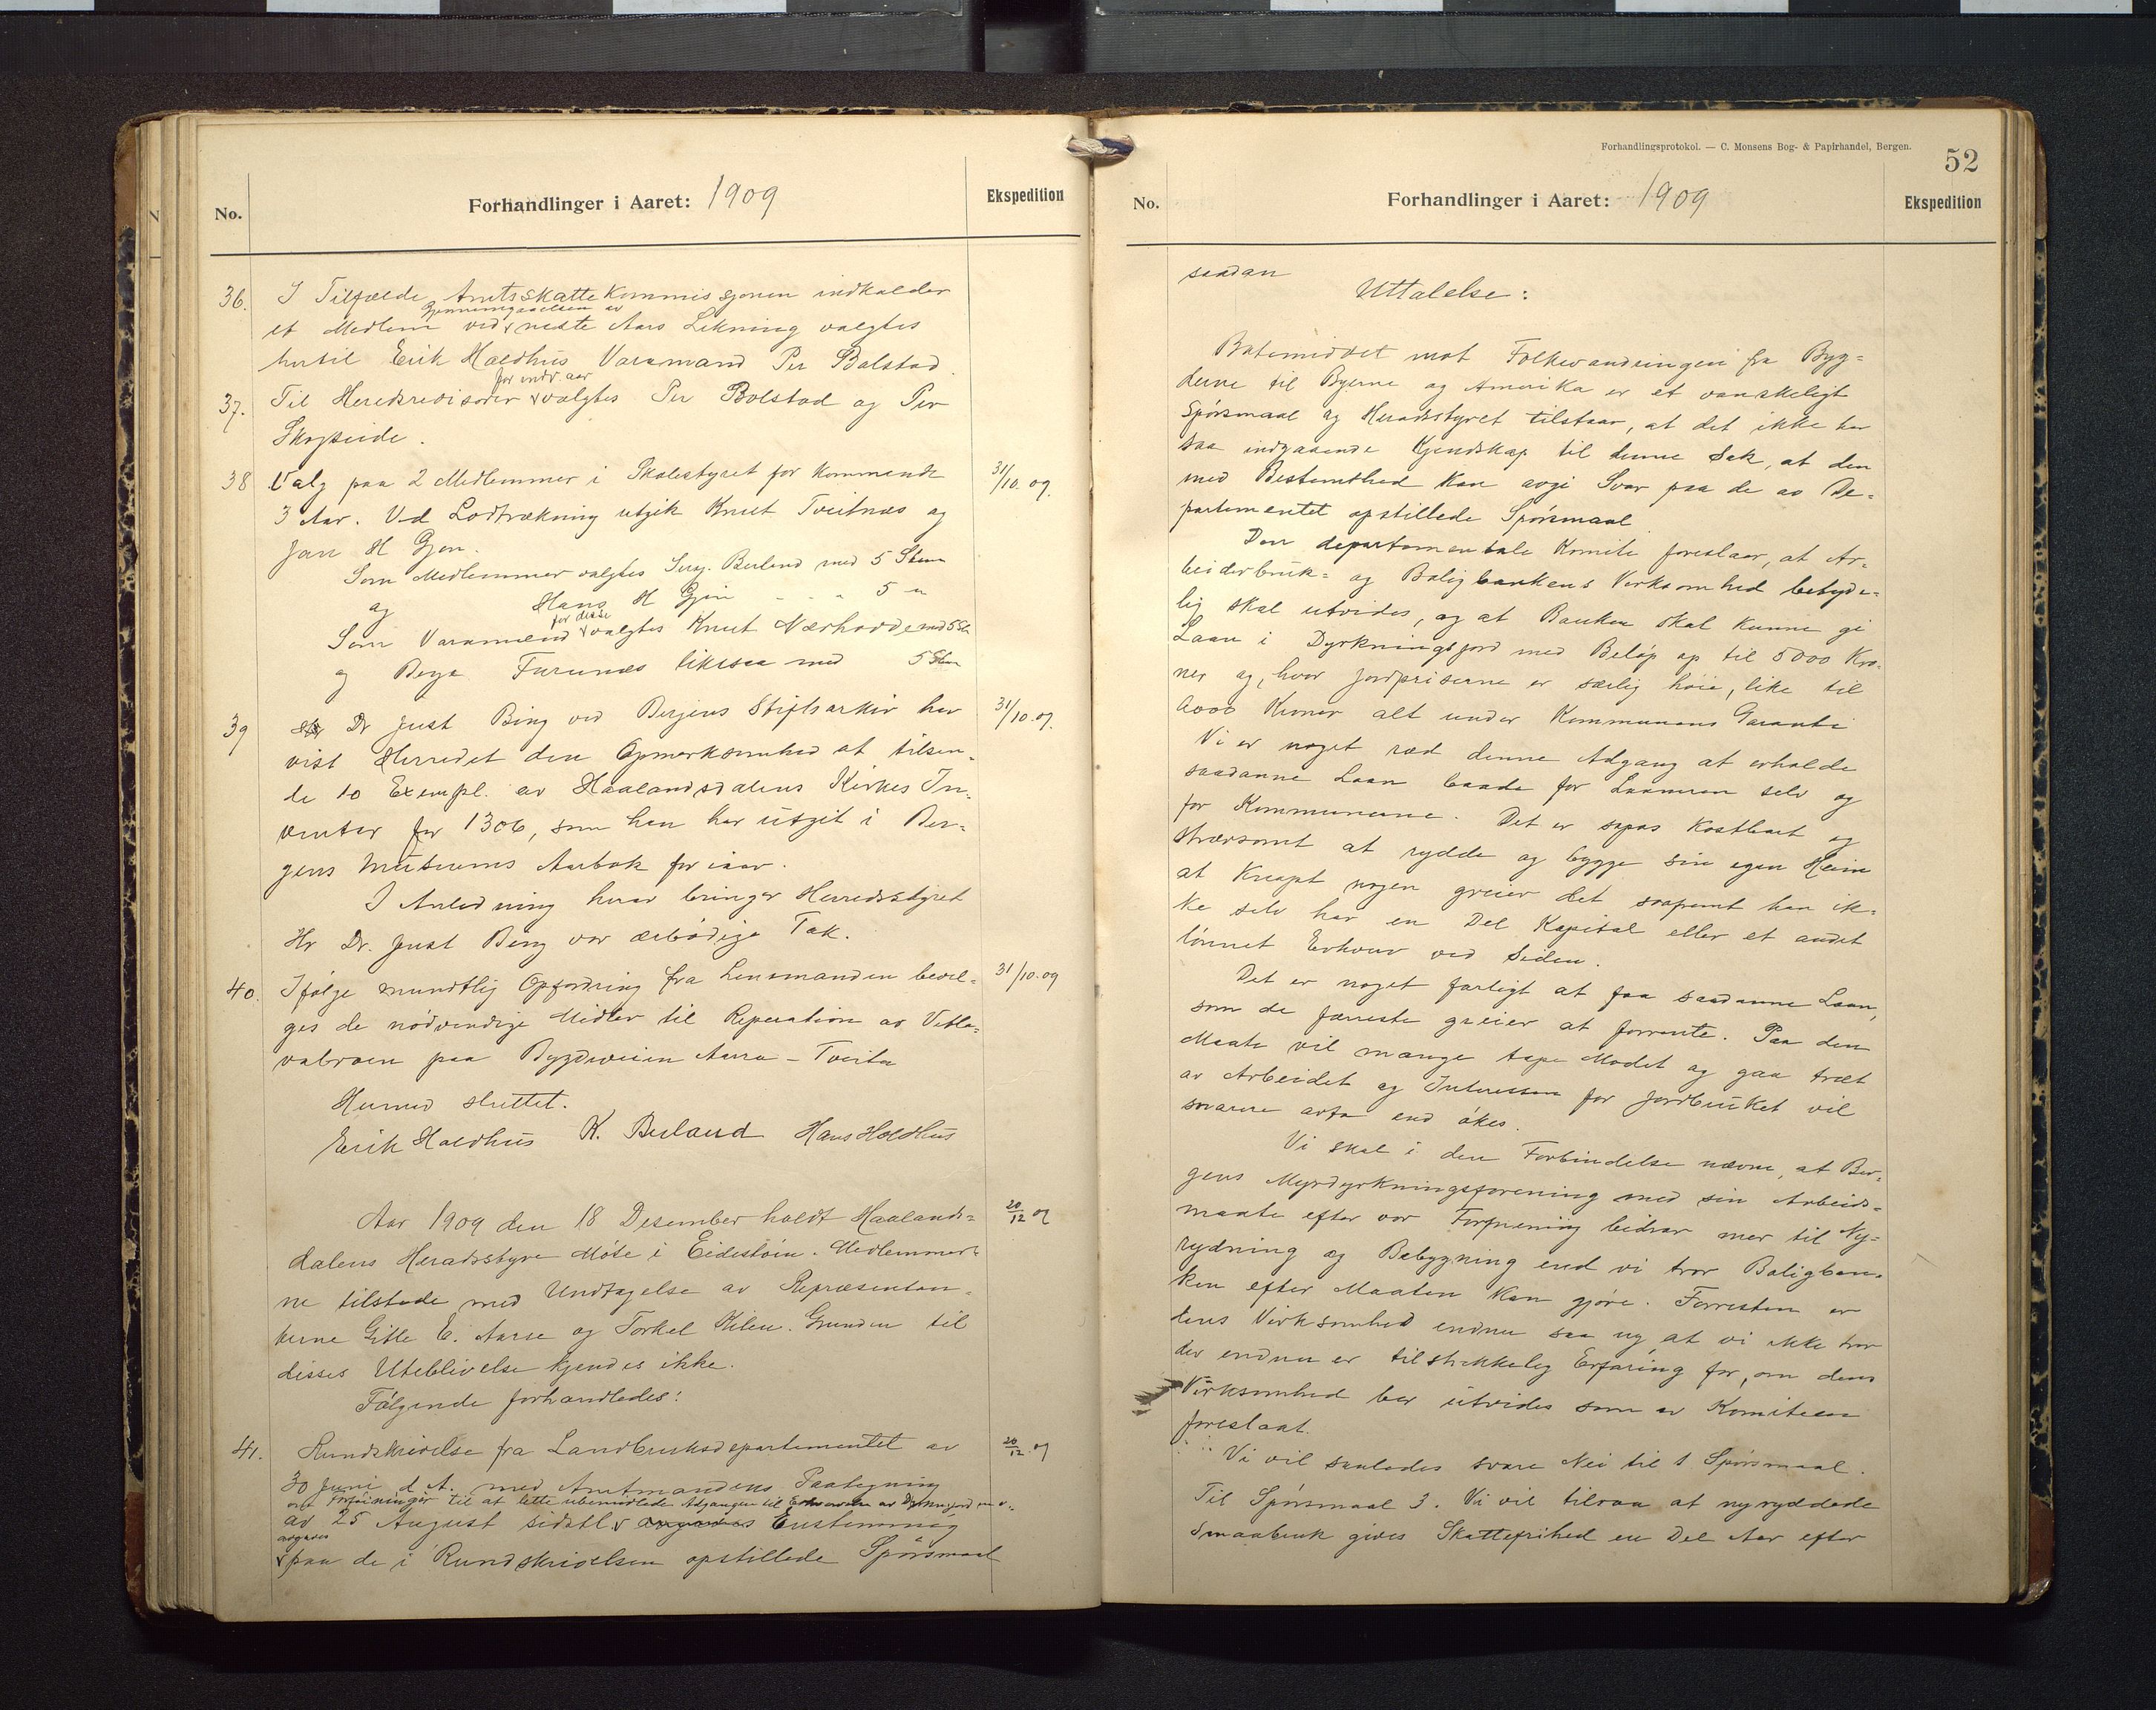 No.
Forhandlinger i Aaret: 1909
Ekspedition
36. I Tilfælde Amtsskattekommissjonen indkalder
Gjennemgaaelsen av
et Medlem ved neste Aars Likning valgtes
hertil Erik Haldhus Varamand Per Bolstad.
for indv. aar
37. Til Heredsrevisorer valgtes Per Bolstad og Per
Skogseide.
38 Valg paa 2 Medlemmer i Skolestyret for kommende 31/10. 09.
3 Aar. Ved Lodtrækning utgik Knut Tveitnes og
Jan H Gjøn.
Som Medlemmer valgtes Berland med 5 Stem
og Hans H Gjøn - - - 5 "
for disse
Som Varamænd valgtes Knut Nærhovde med 5 St
og Børge Furunes likesaa med 5 Stem
39 Dr Just Bing ved Bergens Stiftsarkiv har 31/10. 09.
vist Herredet den Opmerksomhed at tilsen-
de 10 Exempl. av Haalandsdalens Kirkes In-
ventar for 1306, som han har utgit i Ber-
gens Museums Aarbok for iaar.
I Anledning herav bringer Herredsstyret
Hr Dr. Just Bing vor ærbødige Tak.
40. Ifølge mundtlig Opfordring fra Lensmanden bevil- 31/10. 09
ges de nødvendige Midler til Reperation av Vetla-
vabroen paa Bygdeveien Aarra - Tveita
Hermed sluttet.
Erik Haldhus K. Berland Hans Holdhus
Aar 1909 den 18 Desember holdt Haalands- 20/12 09
dalens Heradsstyre Møte i Eidestøin. Medlemmer-
ne tilstede med Undtagelse av Repræsentan-
terne Gitle E. Aarre og Torkel Kilen. Grunden til
disses Uteblivelse kjendes ikke.
Følgende forhandledes:
41. Rundskrivelse fra Landbruksdepartementet av 20/12. 09
30 Juni d. A. med Amtmandens Paategning
om Føininger til at lette ubemidlede Adgangen til Erhvervelse av Dyrkn.jord m v.
av 25 August sidstl. Enstemmig
avgaves
paa de i Rundskrivelsen opstillede Spørsmaal
Forhandlingsprotokol. — C. Monsens Bog- & Papirhandel, Bergen.
52
No.
Forhandlinger i Aaret: 1909
Ekspedition
saadan
Uttalelse:
Botemiddet mot Folkevandringen fra Byg-
derne til Byerne og Amerika er et vanskeligt
Spørsmaal og Heradsstyret tilstaar, at det ikke har
saa indgaaende Kjendskap til denne Sak, at den
med Bestemthed kan avgi Svar paa de av De-
partementet opstillede Spørsmaal
Den departementale Komite foreslaar, at Ar-
beiderbruk- og Boligbankens Virksomhed betyde-
lig skal utvides, og at Banken skal kunne gi
Laan i Dyrkningsjord med Beløp op til 5000 Kro-
ner og, hvor Jordpriserne er særlig høie, like til
6000 Kroner alt under Kommunens Garanti
Vi er noget ræd denne Adgang at erholde
saadanne Laan baade for Laaneren selv og
for Kommunerne. Det er sopas kostbart og
strævsomt at rydde og bygge sin egen Heim
at knapt nogen greier det saaframt han ik-
ke selv har en Del Kapital eller et andet
lønnet Erhverv ved Siden.
Det er noget farligt at faa saadanne Laan,
som de færreste greier at forrente. Paa den
Maate vil mange tape Modet og gaa træt
av Arbeidet og Interessen for Jordbruket vil
snarere avta end økes.
Vi skal i den Forbindelse nævne, at Ber-
gens Myrdyrkningsforening med sin Arbeids-
maate efter vor Formening bidrar mer til Ny-
rydning og Bebygning end vi tror Boligban-
ken efter Maaten kan gjøre. Forresten er
dens Virksomhed endnu saa ny, at vi ikke tror
der endnu er tilstrekkelig Erfaring for, om dens
Virksomhed bør utvides som av Komiteen
foreslaat.
Vi vil saaledes svare Nei til 1 Spørsmaal.
Til Spørsmaal 3. Vi vil tilraa at nyryddede
Smaabruk gives Skattefrihed en Del Aar efter